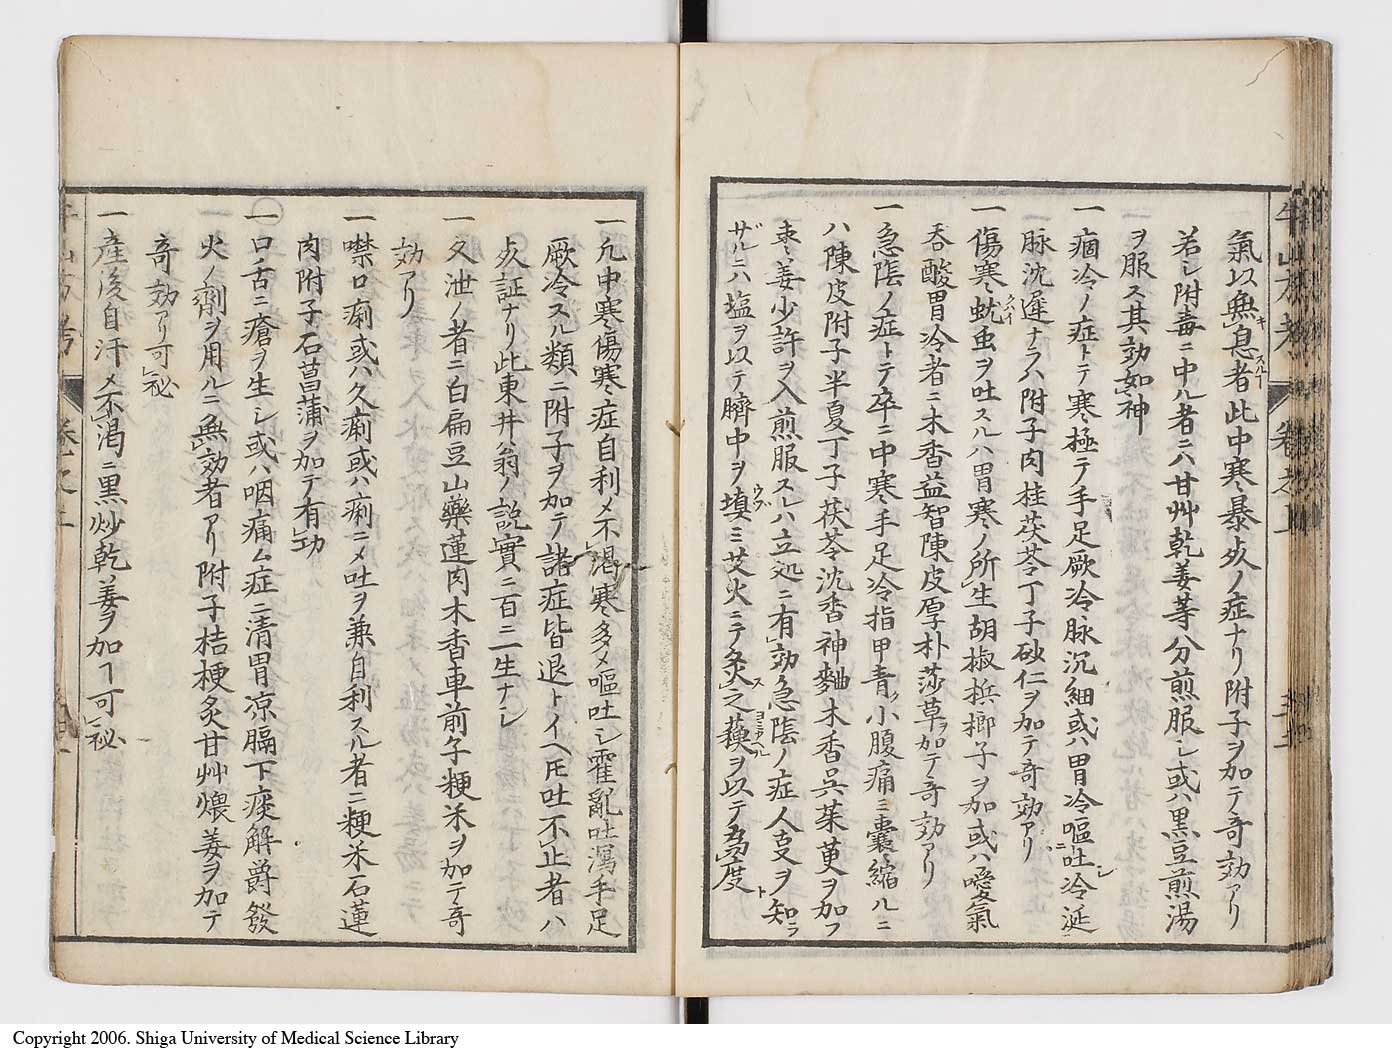 氣以無息者此中寒暴死ノ症ナリ附子ヲ加テ奇効アリ
若シ附毒ニ中ル者ニハ甘艸乾姜等分煎服シ或ハ黒豆煎湯
ヲ服ス其効如神
一痼冷ノ症トテ寒極テ手足厥冷脉沉細或ハ胃冷嘔吐冷涎
脉沈遲ナラハ附子肉桂茯苓丁子砂仁ヲ加テ奇効アリ
一傷寒蚘虫ヲ吐スルハ胃寒ノ所生胡椒梹榔子ヲ加或ハ噯氣
呑酸胃冷者ニ木香益智陳皮厚朴莎草ヲ加テ奇効アリ
一急陰ノ症トテ卒ニ中寒手足冷指甲青ク小腹痛ミ囊縮ルニ
ハ陳皮附子半夏丁子茯苓沈香神麯木香呉茱萸ヲ加フ
棗姜少許ヲ入煎服スレハ立処ニ有効急陰ノ症人事ヲ知ラ
ザルニハ塩ヲ以テ臍中ヲ填ミ艾火ニテ灸之ヲ以テ為度ト
一凡中寒傷寒症自利メ不渇寒多メ嘔吐シ霍亂吐瀉手足
厥冷スル類ニ附子ヲ加テ諸症皆退トイヘ𪜈吐不止者ハ
死証ナリ此東井翁ノ説實ニ百ニ一生ナシ
一又泄ノ者ニ白扁豆山藥蓮肉木香車前子粳米ヲ加テ奇
効アリ
一噤口痢或ハ久痢或ハ痢ニメ吐ヲ兼自利スル者ニ粳米石蓮
肉附子石菖蒲ヲ加テ有功
一口舌ニ瘡ヲ生シ或ハ咽痛ム症ニ清胃凉膈下痰解爵發
火ノ劑ヲ用ルニ無効者アリ附子桔梗炙甘艸煨姜ヲ加テ
奇効アリ可秘
一産後自汗メ不渇ニ黒炒乾姜ヲ加ヿ可秘
Copyright 2006. Shiga University of Medical Science Library